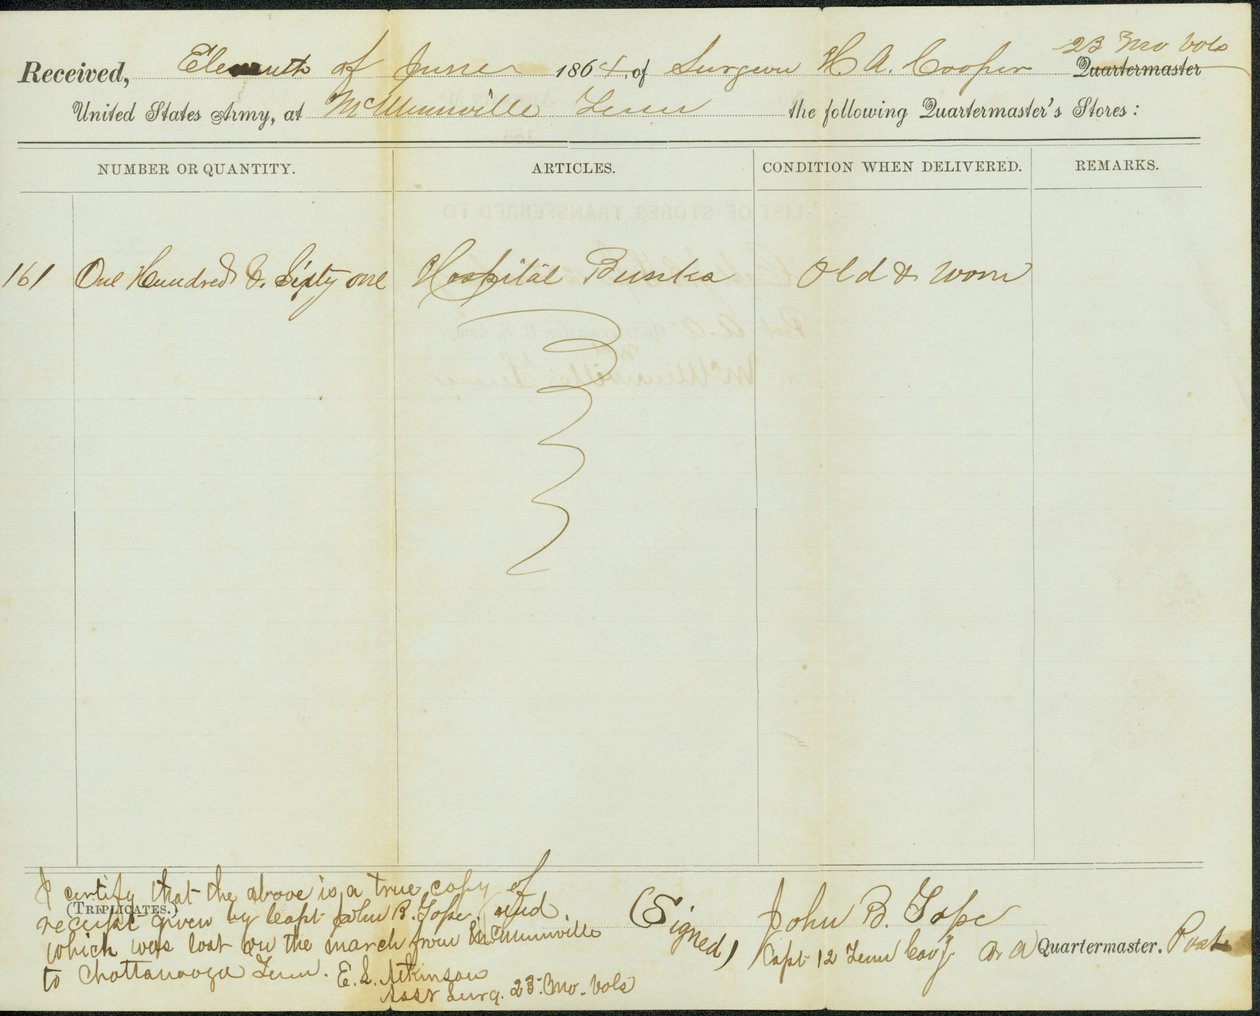 23 Mo Vols
Received, Eleventh of June 1864, of Surgeon H A. Cooper Quartermaster
United States Army, at McMinnville Tenn the following Quartermaster's Stores:
NUMBER OR QUANTITY. ARTICLES. CONDITION WHEN DELIVERED. REMARKS.
161 One Hundred & Sixty one Hospital Bunks Old & worn
I certify that the above is a true copy of
(TRIPLICATES.)
receipt given by Capt John B. Tope and
which was lost on the march from McMinnville
to Chattanooga Tenn. E. L. Atkinson
Asst Surg. 23. Mo. Vols
(Signed) John B. Tope
Capt 12 Tenn Cavy A A Quartermaster. Post